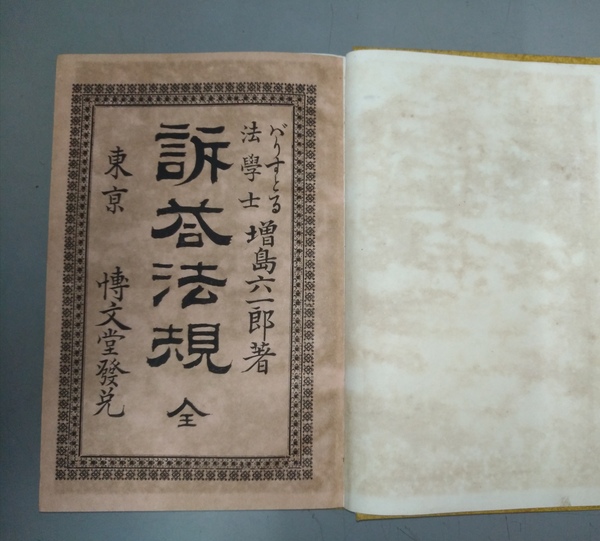 ばりすとる
法學士
増島六一郎著
訴荅法規 全
東亰 博文堂發兌